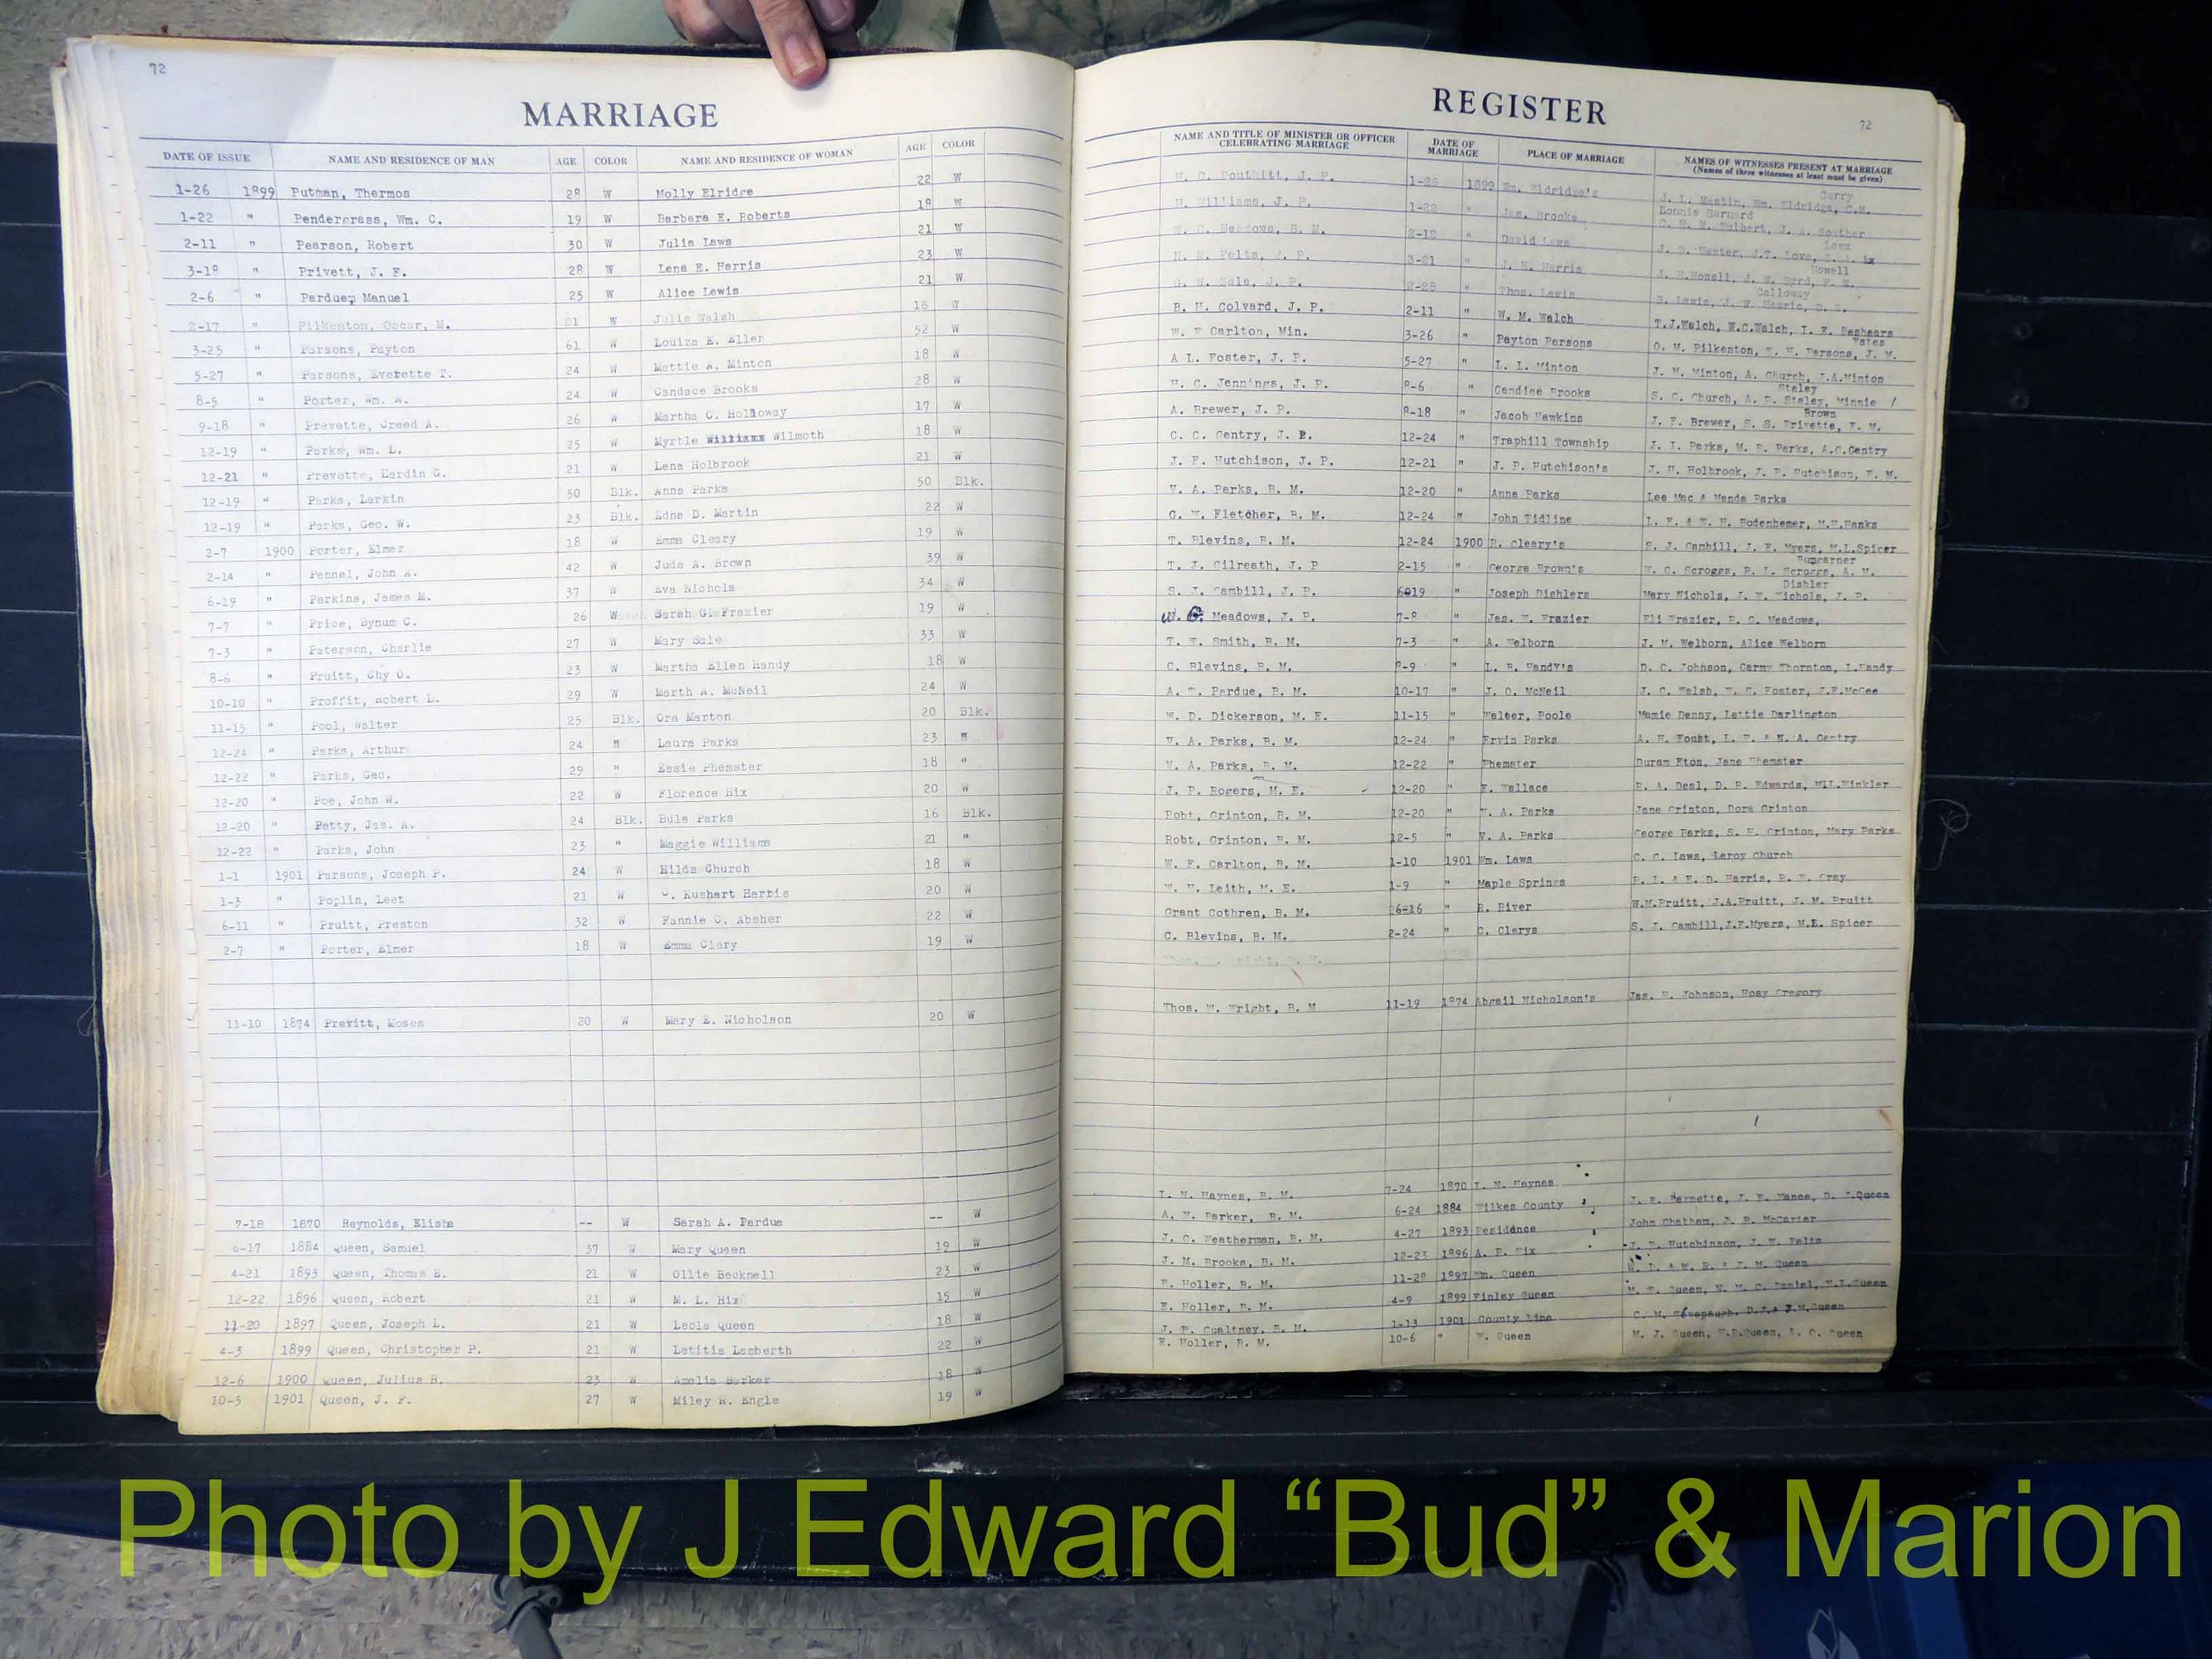 72
MARRIAGE
DATE OF ISSUE NAME AND RESIDENCE OF MAN AGE COLOR NAME AND RESIDENCE OF WOMAN AGE COLOR
1-26 1899 Putman, Thermos 28 W Molly Elridge 22 W
1-22 " Pendergrass, Wm. C. 19 W Barbara E. Roberts 18 W
2-11 " Pearson, Robert 30 W Julia Laws 21 W
3-18 " Privett, J. F. 28 W Lena E. Harris 23 W
2-6 " Perdue, Manuel 25 W Alice Lewis 21 W
2-17 " Pilkenton, Oscar, M. W Julie Walsh 16 W
3-25 " Parsons, Payton 61 W Louiza E. Eller 52 W
5-27 " Parsons, Everette T. 24 W Mattie A. Minton 18 W
8-5 " Porter, Wm. A. 24 W Candace Brooks 28 W
9-18 " Prevette, Creed A. 26 W Martha C. Holloway 17 W
12-19 " Parks, Wm. L. 25 W Myrtle Wilmoth 18 W
12-21 " Prevette, Hardin G. 21 W Lena Holbrook 21 W
12-19 " Parks, Larkin 50 Blk. Anna Parks 50 Blk.
12-19 " Parks, Geo. W. 23 Blk. Edna D. Martin 22 W
2-7 1900 Porter, Elmer 18 W Emma Cleary 19 W
2-14 " Pennel, John A. 42 W Juda A. Brown 39 W
6-19 " Perkins, James M. 37 W Eva Nichols 34 W
7-7 " Price, Bynum C. 26 W Sarah G. Frazier 19 W
7-3 " Paterson, Charlie 27 W Mary Sale 33 W
8-6 " Pruitt, Chy O. 23 W Martha Ellen Handy 18 W
10-10 " Proffit, Robert L. 29 W Marth A. McNeil 24 W
11-15 " Pool, Walter 25 Blk. Ora Marton 20 Blk.
12-24 " Parks, Arthur 24 " Laura Parks 23 "
12-22 " Parks, Geo. 29 " Essie Phemster 18 "
12-20 " Poe, John W. 22 W Florence Hix 20 W
12-20 " Petty, Jas. A. 24 Blk. Bula Parks 16 Blk.
12-22 " Parks, John 23 " Maggie Williams 21 "
1-1 1901 Parsons, Joseph P. 24 W Hilda Church 18 W
1-3 " Poplin, Leet 21 W C. Kushart Harris 20 W
6-11 " Pruitt, Preston 32 W Fannie C. Absher 22 W
2-7 " Porter, Elmer 18 W Emma Clary 19 W
11-10 1874 Previtt, Moses 20 W Mary E. Nicholson 20 W
7-18 1870 Reynolds, Elisha -- W Sarah A. Pardue -- W
6-17 1884 Queen, Samuel 37 W Mary Queen 19 W
4-21 1893 Queen, Thomas E. 21 W Ollie Becknell 23 W
12-22 1896 Queen, Robert 21 W M. L. Hix 15 W
11-20 1897 Queen, Joseph L. 21 W Leola Queen 18 W
4-3 1899 Queen, Christopher P. 21 W Letitia Lamberth 22 W
12-6 1900 Queen, Julius B. 23 W Amelia Barker 18 W
10-5 1901 Queen, J. F. 27 W Miley R. Engle 19 W
REGISTER
72
NAME AND TITLE OF MINISTER OR OFFICER CELEBRATING MARRIAGE DATE OF MARRIAGE PLACE OF MARRIAGE NAMES OF WITNESSES PRESENT AT MARRIAGE
(Names of three witnesses at least must be given)
Curry
H. C. Douthitt, J. P. 1-26 1899 Wm. Eldridge's J. L. Mastin, Wm. Eldridge, C.M.
Lonnie Barnard
H. Williams, J. P. 1-22 " Jas. Brooks C. H. W. Tulbert, J. A. Souther
Laws
W. C. Meadows, B. M. 2-12 " David Laws J. S. Hester, J.T. Love,
Howell
3-21 " J. H. Harris J. W. Byrd,
Calloway
G. W. Sale, J. P. 2-28 " Thos. Lewis
B. H. Colvard, J. P. 2-11 " W. M. Walch T.J.Walch, W.C.Walch, I. E. Beshears
Yates
W. F Carlton, Min. 3-26 " Payton Parsons O. M. Pilkenton, Parsons, J. M.
A L. Foster, J. P. 5-27 " L. L. Minton J. M. Minton, A. Church, J.A.Minton
Staley
H. C. Jennings, J. P. 8-6 " Candice Brooks S. C. Church, A. P. Staley, Minnie /
Brown
A. Brewer, J. P. 9-18 " Jacob Hawkins J. F. Brewer, S. S. Privette, F. M.
C. C. Gentry, J. P. 12-24 " Traphill Township J. I. Parks, M. B. Parks, A.C.Gentry
J. F. Hutchison, J. P. 12-21 " J. P. Hutchison's J. H. Holbrook, J. P. Hutchison, F. M.
V. A. Parks, B. M. 12-20 " Anna Parks Lee Mac & Manda Parks
G. W. Fletcher, B. M. 12-24 " John Tidline L. F. & W. H. Bodenhemer, M.H.Hanks
T. Blevins, B. M. 12-24 1900 R. Cleary's S. J. Cambill, J. F. Myers, M.L.Spicer
Bumgarner
T. J. Gilreath, J. P 2-15 " George Brown's W. C. Scroggs, P. L. Scroggs, A. M.
Dishler
S. J. Cambill, J. P. 6019 " Joseph Dishlers Mary Nichols, J. W. Nichols, J. P.
W. G. Meadows, J. P. 7-8 " Jas. H. Frazier Eli Frazier, R. C. Meadows,
T. T. Smith, B. M. 7-3 " A. Welborn J. M. Welborn, Alice Welborn
C. Blevins, B. M. 8-9 " L. B. Handy's D. C. Johnson, Carmy Thornton, L.Handy
A. T. Pardue, B. M. 10-17 " J. O. McNeil J. C. Walsh, W. C. Foster, J.F.McGee
W. D. Dickerson, M. E. 11-15 " Walter, Poole Mamie Denny, Lettie Darlington
V. A. Parks, B. M. 12-24 " Ervin Parks A. H. Foust, L. P. & N. A. Gentry
V. A. Parks, B. M. 12-22 " Phemster Duram Eton, Jane Phemster
J. P. Rogers, M. E. 12-20 " E. Wallace R. A. Deal, D. P. Edwards, Winkler
Robt, Grinton, B. M. 12-20 " V. A. Parks Jane Grinton, Dora Grinton
Robt, Grinton, B. M. 12-5 " V. A. Parks George Parks, S. E. Grinton, Mary Parks
W. F. Carlton, B. M. 1-10 1901 Wm. Laws C. C. Laws, Leroy Church
W. H. Leith, M. E. 1-9 " Maple Springs P. L. & F. D. Harris, R. M. Gray
Grant Cothren, B. M. 26-16 " R. River W.M.Pruitt, J.A.Pruitt, J. M. Pruitt
C. Blevins, B. M. 2-24 " C. Clarys S. J. Cambill,J.F.Myers, M.E. Spicer
Thos. W. Wright, B. M 11-19 1874 Abgail Nicholson's Jas. H. Johnson, Hosy Gregory
I. M. Haynes, B. M. 7-24 1870 I. M. Haynes
A. M. Parker, B. M. 6-24 1884 Wilkes County J. F. Mance, D. J.Queen
J. C. Weatherman, B. M. 4-27 1893 Residence John Chatham, J. P. McCarter
J. M. Brooks, B. M. 12-23 1896 A. P. Hix Hutchinson, J. W. Felts
E. Holler, B. M. 11-28 1897 Wm. Queen W. D. & W. R. & J. M. Queen
E. Holler, B. M. 4-9 1899 Finley Queen
J. P. Gualtney, B. M. 1-13 1901 County Line
E. Holler, B. M. 10-6 " W. Queen M. J. Queen, H.R.Queen, L. C. Queen
Photo by J Edward “Bud” & Marion